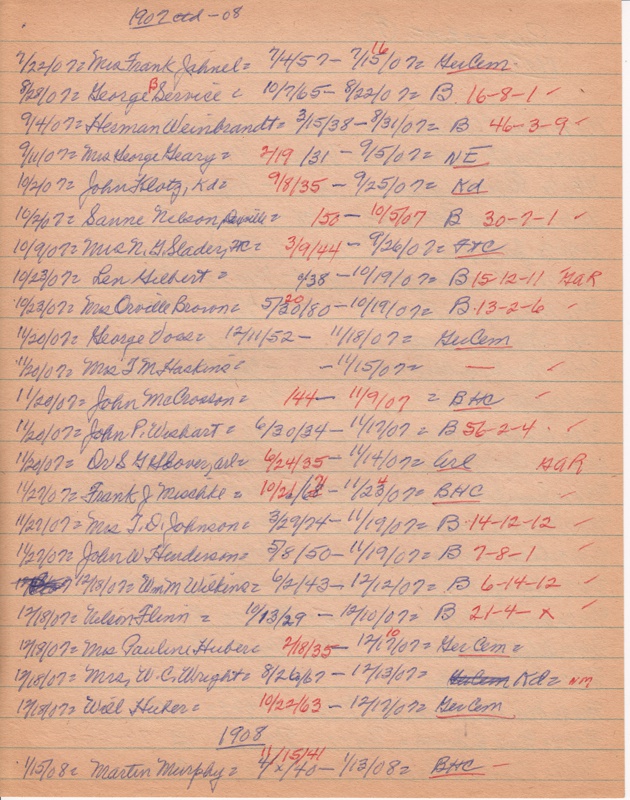 1907 ctd - 08
7/22/07 = Mrs Frank Jahnel = 7/4/57 - 7/15/07 = GerCem 16
8/28/07 = George B Service = 10/7/65 - 8/22/07 = B 16-8-1 ✓
9/4/07 = Herman Weinbrandt = 3/15/38 - 8/31/07 = B 46-3-9 ✓
9/11/07 = Mrs George Geary = 2/19/31 - 9/5/07 = NE
10/2/07 = John Klotz, Kd = 9/8/35 - 9/25/07 = Kd
10/2/07 = Sanne Nelson = /50 - 10/5/07 B 30-7-1 ✓
10/9/07 = Mrs N. G. Slader, = 3/9/44 - 9/26/07 =
10/23/07 = Len Gilbert = /38 - 10/19/07 = B 15-12-11 GaR
10/23/07 = Mrs Orville Brown = 5/20/80 - 10/19/07 = B 13-2-6 ✓
11/20/07 = George Voss = 12/11/52 - 11/18/07 = GerCem
11/20/07 = Mrs T M Haskins = - 11/15/07 = — ✓
11/20/07 = John McCrosson = /44 - 11/9/07 = BHC ✓
11/20/07 = John P. Wishart = 6/30/34 - 11/17/07 = B 56-2-4 ✓
11/20/07 = Dr S G Hoover, arl = 6/24/35 - 11/14/07 = arl GaR
11/27/07 = Frank J Mischke = 10/21/ - 11/ /07 = BHC ✓
11/27/07 = Mrs T. D. Johnson = 3/29/74 - 11/19/07 = B 14-12-12 ✓
11/27/07 = John W Henderson = 5/8/50 - 11/19/07 = B 7-8-1 ✓
12/18/07 = Wm M Wilkins = 6/2/43 - 12/12/07 = B 6-14-12 ✓
12/18/07 = Nelson Flinn = 10/13/29 - 12/10/07 = B 21-4-x ✓
12/19/07 = Mrs Pauline Huber = 2/18/35 - 12/17/07 = GerCem = 10
12/18/07 = Mrs, W. C. Wright = 8/26/67 - 12/13/07 = GerCem Kd = NM
12/18/07 = Will Huber = 10/22/63 - 12/17/07 = GerCem
1908
11/15/41
1/15/08 = Martin Murphy = 4/x/40 - 1/13/08 = BHC -